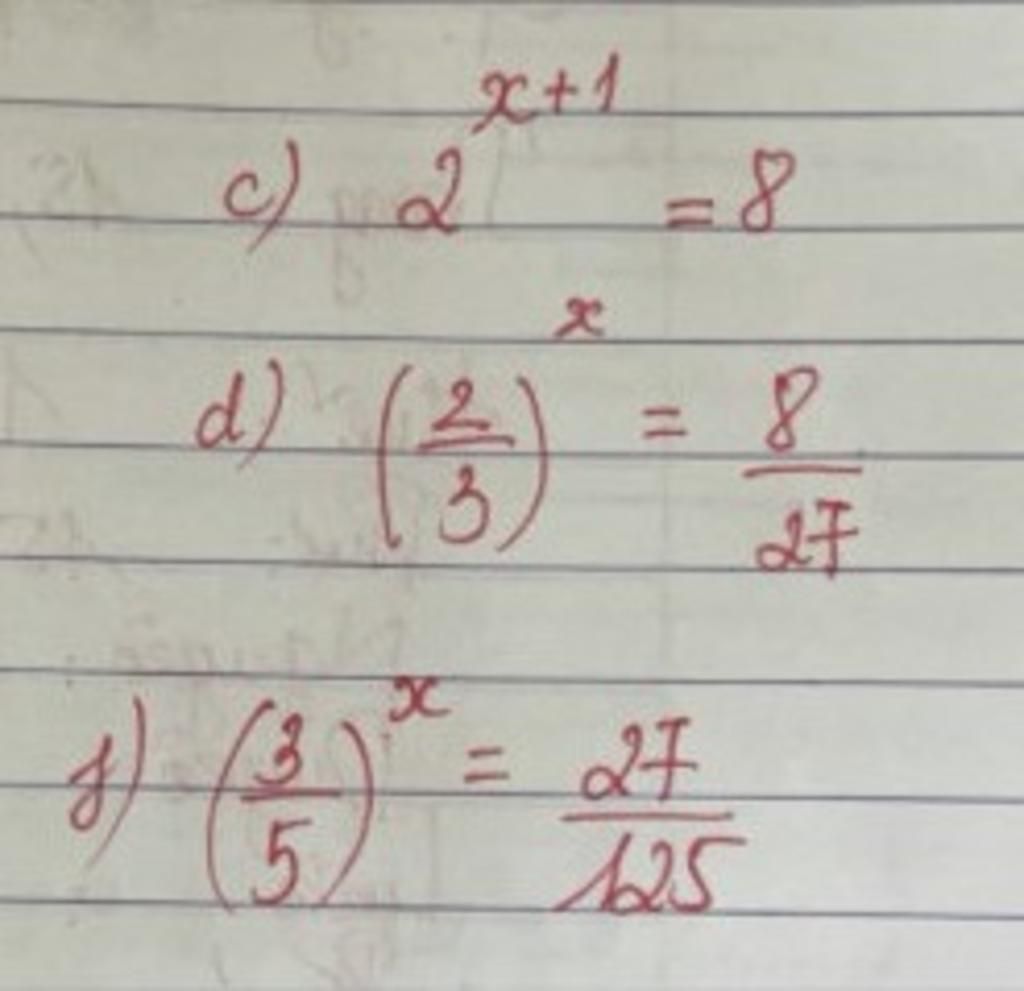 c) 2^{x+1} = 8
d) \left(\frac{2}{3}\right)^x = \frac{8}{27}
f) \left(\frac{3}{5}\right)^x = \frac{27}{125}